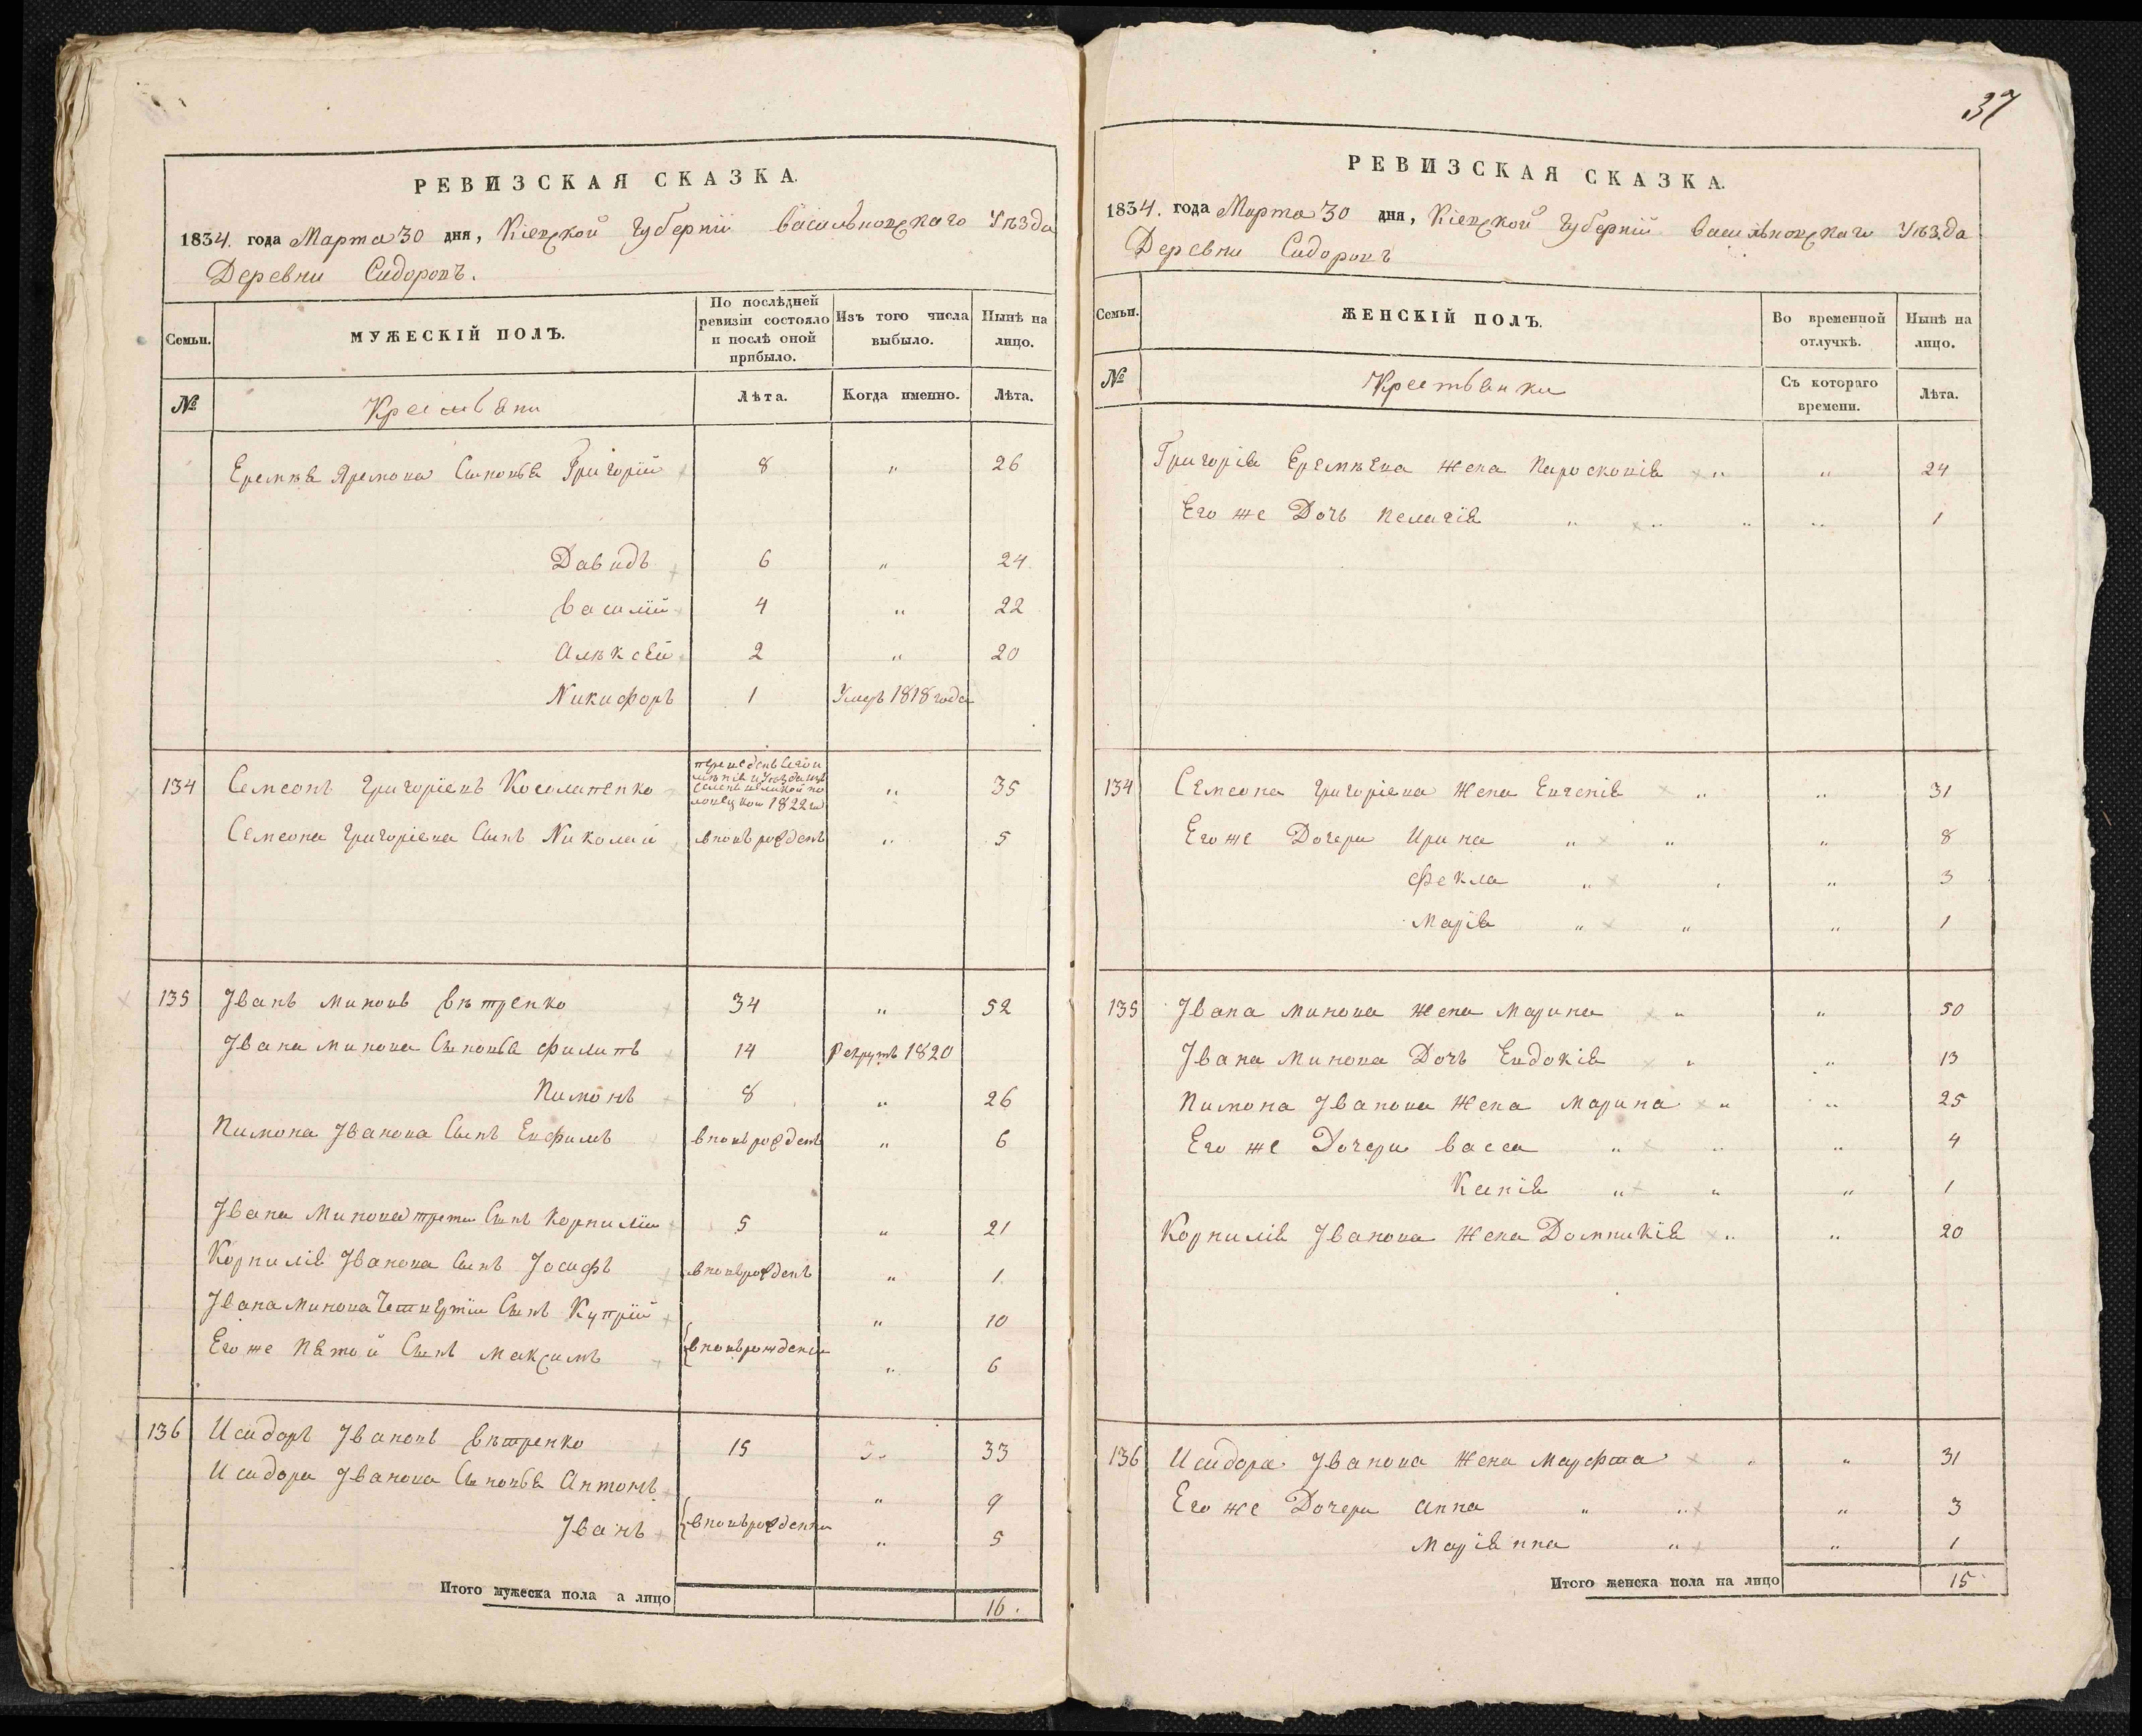 37
РЕВИЗСКАЯ СКАЗКА.
1834. года Марта 30 дня, Кіевской губерніи Васильковскаго Уѣзда
Деревни Сидоровъ.
Семьи.
МУЖЕСКІЙ ПОЛЪ.
По послѣдней ревизіи состояло и послѣ оной прибыло.
Изъ того числа выбыло.
Нынѣ на лицо.
№
Крестьяни
Лѣта.
Когда именно.
Лѣта.
Еремѣя Яремова Сыновья Григорій 8 „ 26
Давидъ 6 „ 24
Василій 4 „ 22
Алѣксѣй 2 „ 20
Никифоръ 1 Умеръ 1818 года
134 Семеонъ Григоріевъ „ 35
1822
Семеона Григоріева Сынъ Николай вновь рожденъ „ 5
135 Іванъ Миновъ Вѣтренко 34 „ 52
Івана Минова Сыновья Филипъ 14 Рекрутъ 1820
Пимонъ 8 „ 26
Пимона Іванова Сынъ Евфимъ вновь рожденъ „ 6
Івана Минова трети Сынъ Корнилій 5 „ 21
Корнилія Іванова Сынъ Іосифъ вновь рожденъ „ 1
Івана Минова Четвертій Сынъ Купрій „ 10
Его же Пятой Сынъ Максимъ вновь рождени „ 6
136 Исидоръ Івановъ Вѣтренко 15 „ 33
Исидора Іванова Сыновья Антонъ „ 9
Іванъ вновь рожденни „ 5
Итого мужеска пола а лицо 16.
РЕВИЗСКАЯ СКАЗКА.
1834. года Марта 30 дня, Кіевской губерніи Васильковскаго Уѣзда
Деревни Сидоровъ
Семьи.
ЖЕНСКІЙ ПОЛЪ.
Во временной отлучкѣ.
Нынѣ на лицо.
№
Крестьянки
Съ котораго времени.
Лѣта.
Григорія Еремѣева жена Пароскопія „ „ 24
Его же Дочь Пелагія „ „ „ „ 1
134 Семеона Григоріева жена Евгенія „ „ 31
Его же Дочери Ирина „ „ „ 8
Фекла „ „ „ 3
Марія „ „ „ 1
135 Івана Минова жена Марина „ „ 50
Івана Минова Дочь Евдокія „ „ 13
Пимона Іванова жена Марина „ „ 25
Его же Дочери Васса „ „ „ 4
Ксенія „ „ „ 1
Корнилія Іванова жена Домникія „ „ 20
136 Исидора Іванова жена Марфта „ „ 31
Его же Дочери Анна „ „ „ 3
Маріянна „ „ 1
Итого женска пола на лицо 15